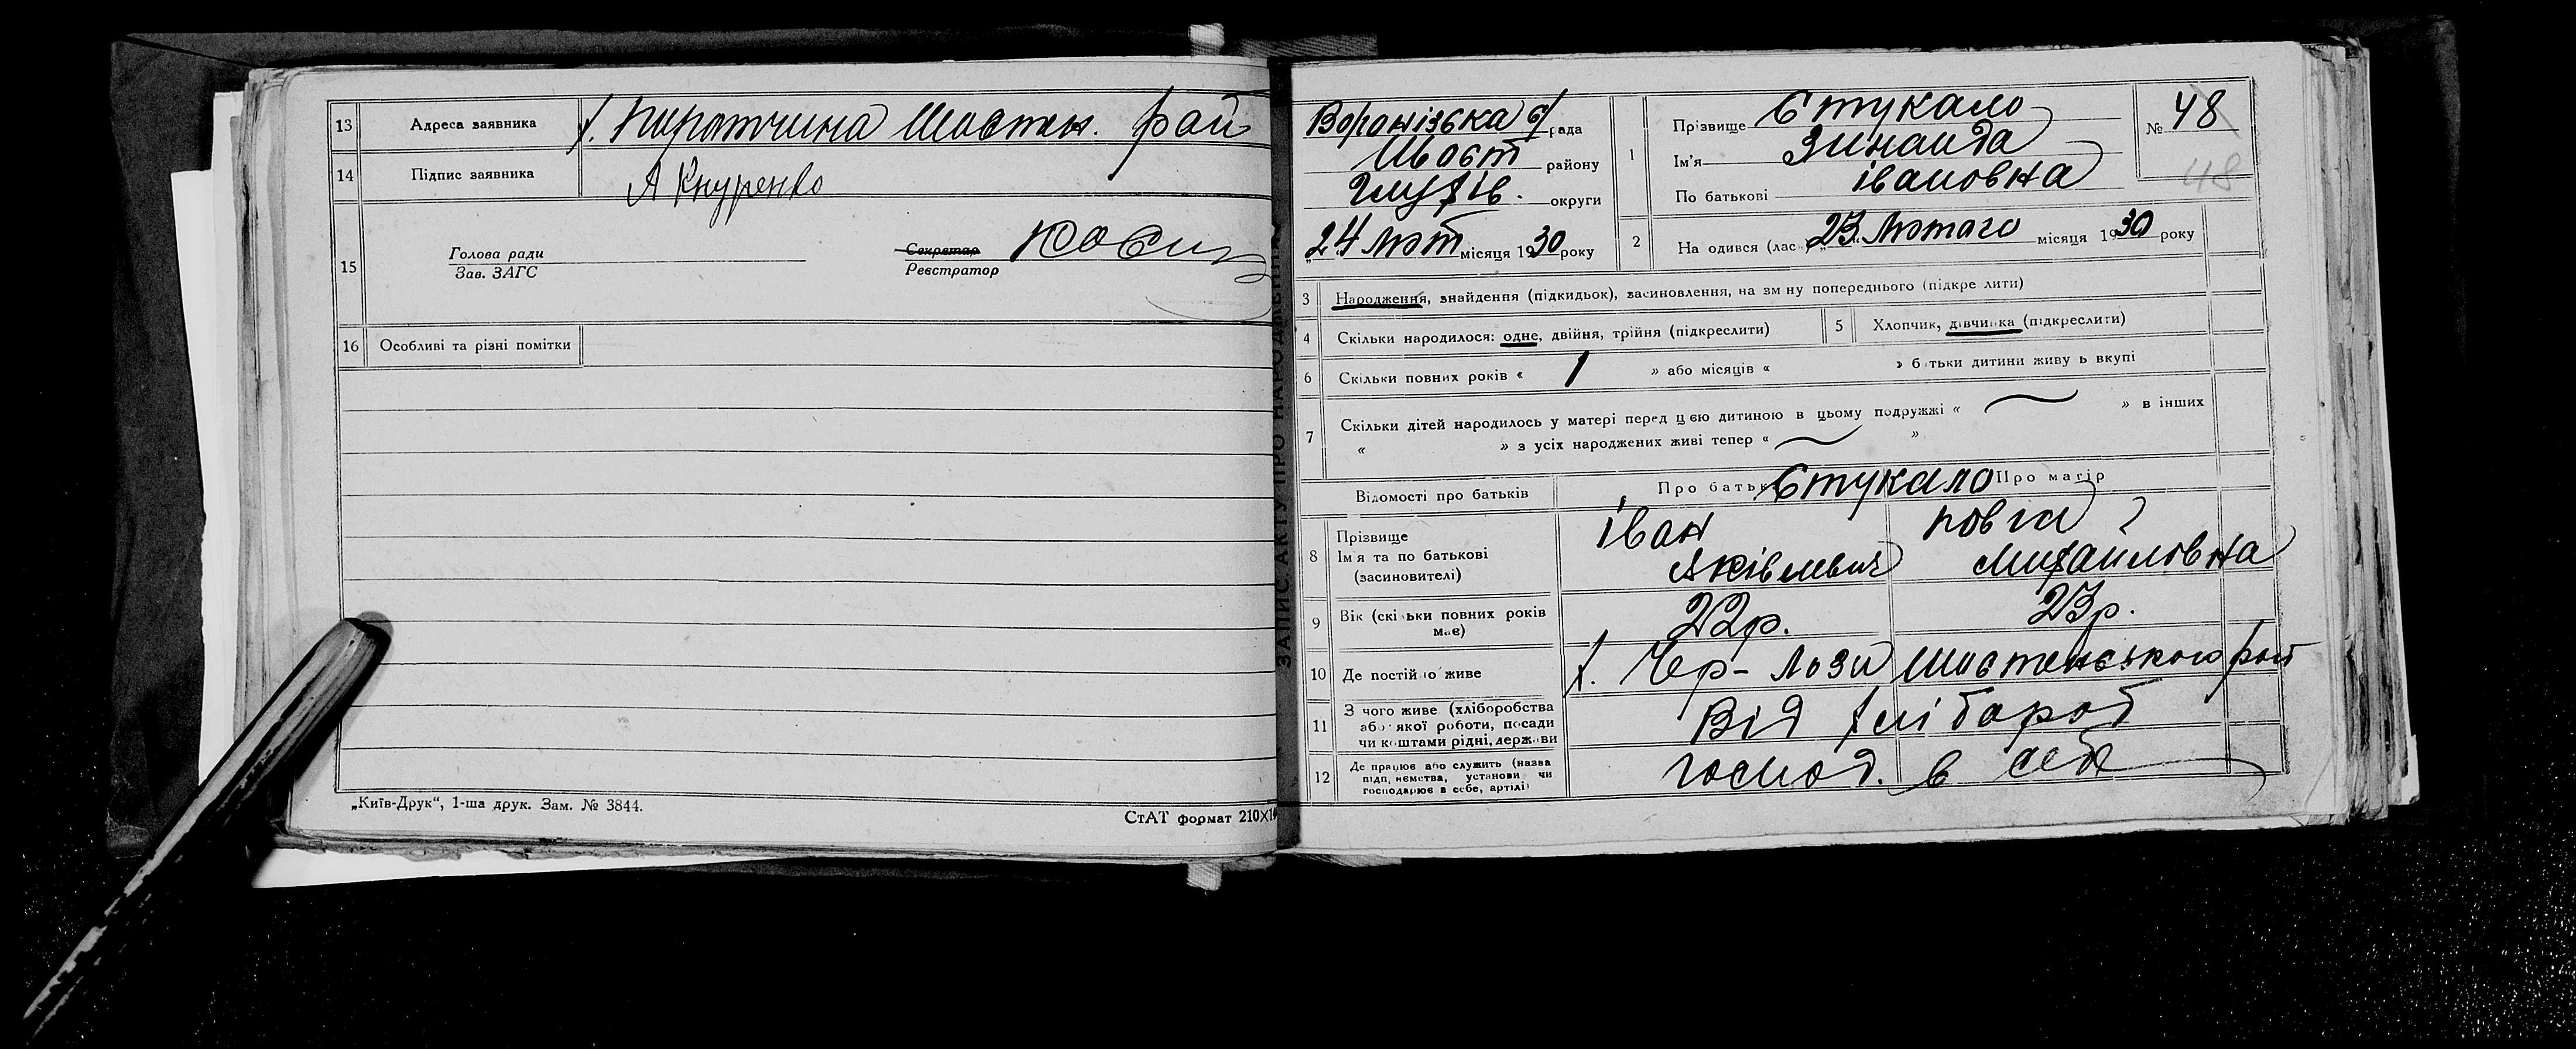 13 Адреса заявника х. Пиротчина Шостен. рай
14 Підпис заявника А Кнуренко
15 Голова ради
Зав. ЗАГС
Секретар
Реєстратор
16 Особливі та різні помітки
„Київ-Друк“, 1-ша друк. Зам. № 3844.
СтАТ формат 210X1
ЗАПИС АКТУ ПРО НАРОДЖЕННЯ
Воронізька с/рада
Шост району
Глухів. округи
„24 Лют місяця 1930 року
1 Прізвище Стукало
Ім'я Зинаида
По батькові івановна
№ 48
48
2 На одився (лас ) „23“ Лютого місяця 1930 року
3 Народження, знайдення (підкидьок), засиновлення, на зм ну попереднього (підкре лити)
4 Скільки народилося: одне, двійня, трійня (підкреслити)
5 Хлопчик, дівчинка (підкреслити)
6 Скільки повних років « 1 » або місяців « » б тьки дитини живу ь вкупі
7 Скільки дітей народилось у матері перед цією дитиною в цьому подружжі « » в інших
« » з усіх народжених живі тепер « »
Відомості про батьків
Про батьк Стукало Про матір
8 Прізвище
Ім'я та по батькові
(засновителі)
іван
Яківлевич
Михайловна
9 Вік (скі ьки повних років
має)
22р.
23р.
10 Де постій о живе х. Чер-Лози Шостенського рай
11 З чого живе (хліборобства
або якої роботи, посади
чи коштами рідні, держави
Від хлібороб
12 Де працює або служить (назва
підп, ємства, установи чи
господарює в себе, артілі)
господ. в себе